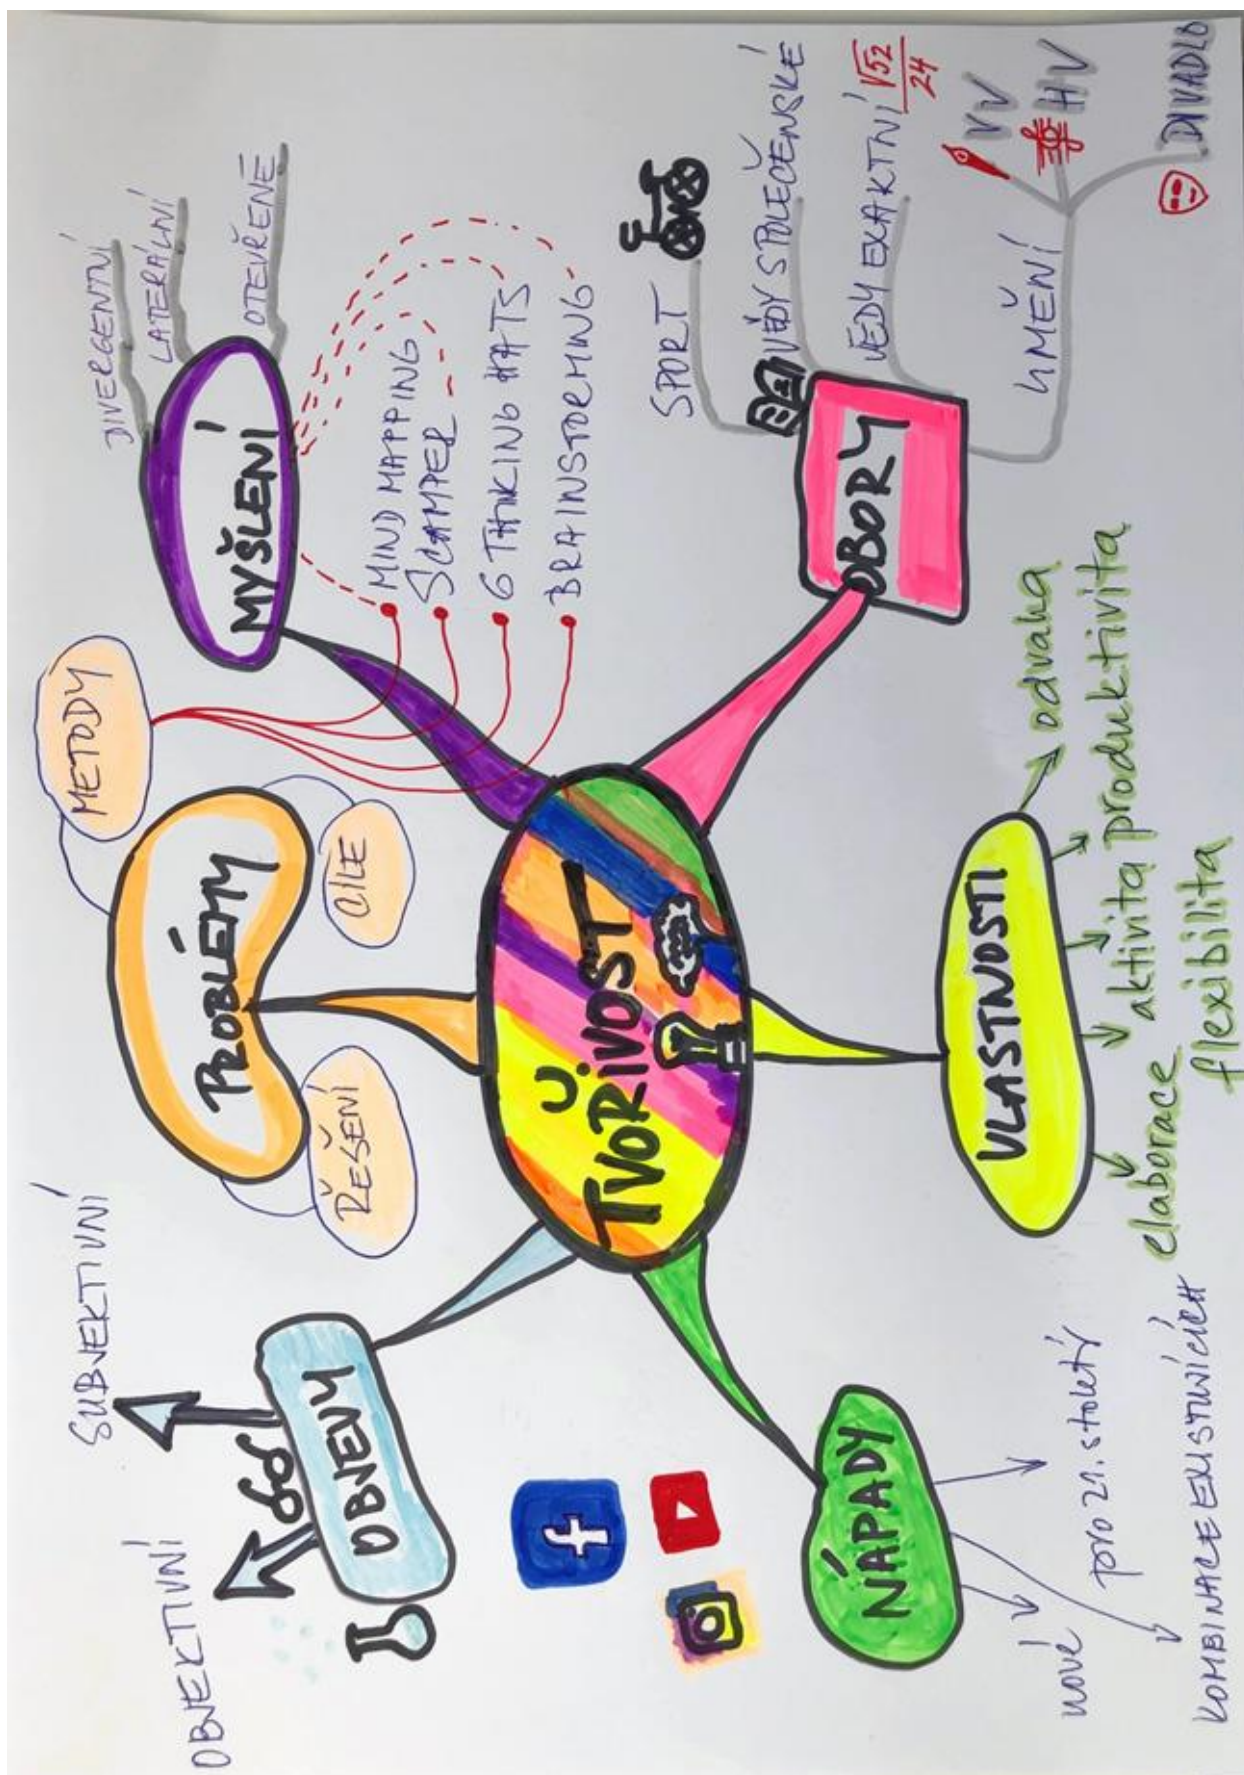 TVOŘIVOST
OBJEVY
OBJEKTIVNÍ
SUBJEKTIVNÍ
PROBLÉMY
ŘEŠENÍ
CÍLE
METODY
MYŠLENÍ
DIVERGENTNÍ
LATERÁLNÍ
OTEVŘENÉ
MIND MAPPING
SCAMPER
6 THINKING HATS
BRAINSTORMING
OBORY
SPORT
VĚDY SPOLEČENSKÉ
VEDY EXAKTNÍ
√52
24
UMĚNÍ
VV
HV
DIVADLO
VLASTNOSTI
elaborace
flexibilita
aktivita
produktivita
odvaha
NÁPADY
nové
pro 21. století
KOMBINACE EXISTUJÍCÍCH
f